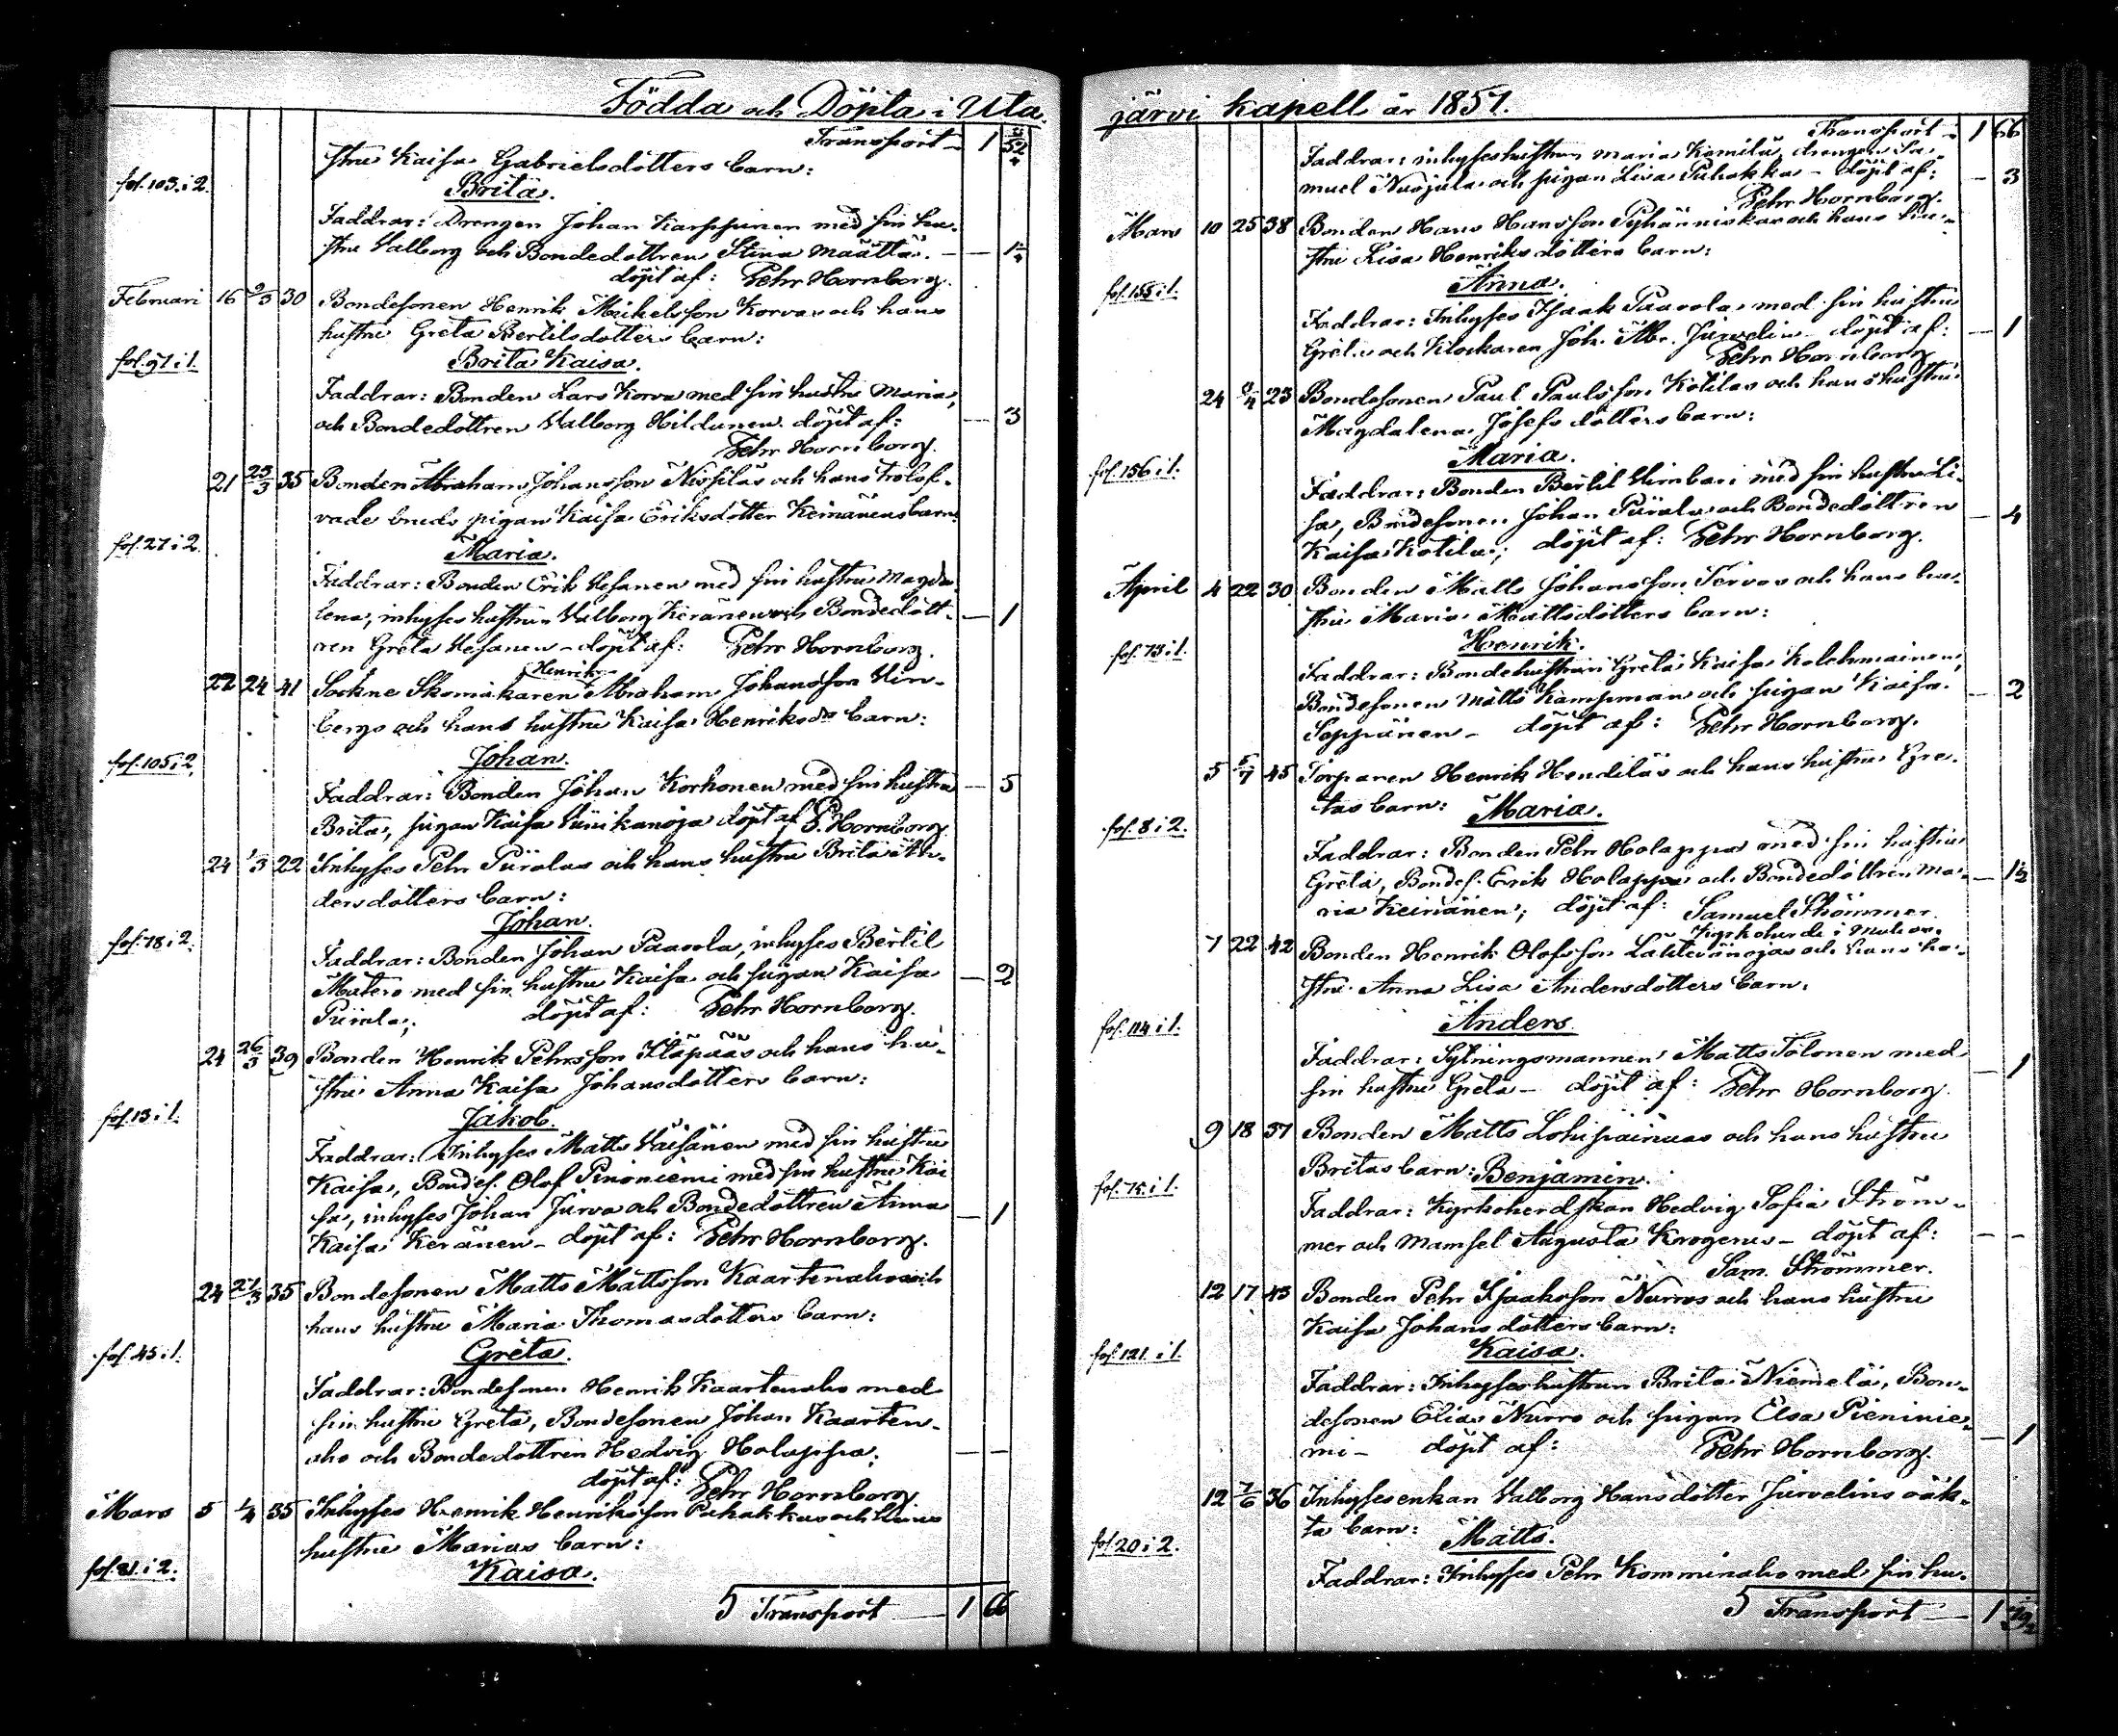 Födda och Döpta i Uta
Transport — 1 52
stru Kaisa Gabrielsdotters barn:
fol. 103 i 2. Brita.
Faddrar: Drengen Johan Karppinen med sin hu-
stru Valborg och Bondedottren Stina Määttä. —
döpt af: Pehr Hornborg.
Februari 16 2/3 30 Bondesonen Henrik Mickelsson Korvas och hans
hustru Greta Bertilsdotters barn:
fol. 97 i 1. Brita Kaisa.
Faddrar: Bonden Lars Korva med sin hustru Maria,
och Bondedottren Valborg Hildunen. döpt af: — 3
Pehr Hornborg.
21 23/3 35 Bonden Abrahams Johansson Nissiläs och hans trolof-
vade bruds pigan Kaisa Eriksdotter Keinänens barn:
fol. 27 i 2. Maria.
Faddrar: Bonden Erik Vesanen med sin hustru Magda-
lena, inhyses hustrun Valborg Keränen och Bondedott- — 1
ren Greta Vesanen – döpt af: Pehr Hornborg.
22 24 41 Sockne Skomakaren Henrik Abraham Johansson Vin-
bergs och hans hustru Kaisa Henriksdr barn:
fol. 105 i 2. Johan.
Faddrar: Bonden Johan Korhonen med sin hustru — 5
Brita, pigan Kaisa döpt af P. Hornborg.
24 1/3 22 Inhyses Pehr Piiralas och hans hustru Brita An-
dersdotters barn:
fol. 78 i 2. Johan.
Faddrar: Bonden Johan Paavola, inhyses Bertil
Matero med sin hustru Kaisa och pigan Kaisa — 2
Piirala; döpt af: Pehr Hornborg.
24 26/3 39 Bonden Henrik Pehrsson Ylipääs och hans hu-
stru Anna Kaisa Johansdotters barn:
fol. 13 i 1. Jakob.
Faddrar: Inhyses Matts Väisänen med sin hustru
Kaisa, Bondes. Olof Pinoniemi med sin hustru Kai
sa, inhyses Johan Jurva och Bondedottren Anna — 1
Kaisa Keränen – döpt af: Pehr Hornborg.
24 27/3 35 Bondesonen Matts Mattsson Kaartenahos och
hans hustru Maria Thomasdotters barn:
fol. 45 i 1. Greta.
Faddrar: Bondesonen Henrik Kaartenaho med
sin hustru Greta, Bondesonen Johan Kaarten-
aho och Bondedottren Hedvig Holappa; — —
döpt af: Pehr Hornborg
Mars 5 1/4 35 Inhyses Henrik Henriksson Puhakkas och hans
hustru Marias barn:
fol. 81. i 2. Kaisa.
5 Transport — 1 66
järvi kapell år 1857.
Transport – 1 66
Faddrar: inhyseshustrun Maria Komila, drengen Sa-
muel Nuojula och pigan Lisa Puhakka – döpt af: — 3
Pehr Hornborg.
Mars 10 25 38 Bonden Hans Hansson Pyhänniskas och hans hu-
stru Lisa Henriksdotters barn:
fol. 155 i 1. Anna.
Faddrar: Inhyses Isaak Paavola med sin hustru
Greta och Klockaren Joh. Abr. Jurvelin – döpt af: — 1
Pehr Hornborg
24 9/4 23 Bondesonen Paul Paulsson Kotilas och hans hustru
Magdalena Josefsdotters barn:
fol. 156 i 1. Maria.
Faddrar: Bonden Bertil Hirnbari med sin hustru Li-
sa, Bondesonen Johan Piirala och Bondedottren — 4
Kaisa Kotila; döpt af: Pehr Hornborg.
April 4 22 30 Bonden Matts Johansson Tervos och hans hu-
stru Maria Mattsdotters barn:
fol. 73 i 1. Henrik.
Faddrar: Bondehustrun Greta Kaisa Kolehmainen,
Bondesonen Matts Kampman och pigan Kaisa — 2
Seppänen – döpt af: Pehr Hornborg.
5 5/7 45 Torparen Henrik Hendiläs och hans hustru Gre-
tas barn: Maria.
fol. 8 i 2.
Faddrar: Bonden Pehr Holappa med sin hustru
Greta, Bondes. Erik Holappa och Bondedottren Ma- — 1½
ria Keinänen; döpt af: Samuel Strömmer.
Kyrkoherde i Muhos.
7 22 42 Bonden Henrik Olofsson Lahtevänojas och hans hu-
stru Anna Lisa Andersdotters barn:
fol. 114 i 1. Anders.
Faddrar: Sytningsmannen Matts Tolonen med — 1
sin hustru Greta – döpt af: Pehr Hornborg.
9 18 37 Bonden Matts Lohipainuas och hans hustru
Britas barn: Benjamin.
fol. 75. i 1.
Faddrar: Kyrkoherdskan Hedvig Sofia Ström-
mer och Mamsel Augusta Krogerus – döpt af: — –
Sam. Strömmer.
12 17 43 Bonden Pehr Isaksson Nurros och hans hustru
Kaisa Johansdotters barn:
fol. 121. i 1. Kaisa.
Faddrar: Inhyseshustrun Brita Niemelä, Bon-
desonen Elias Nurro och pigan Elsa Pieninie-
mi – döpt af: Pehr Hornborg. — 1
12 7/6 36 Inhysesenkan Valborg Hansdotter Jurvelins oäk-
ta barn: Matts.
fol. 20 i 2.
Faddrar: Inhyses Pehr Komminaho med sin hu-
5 Transport — 1 79½